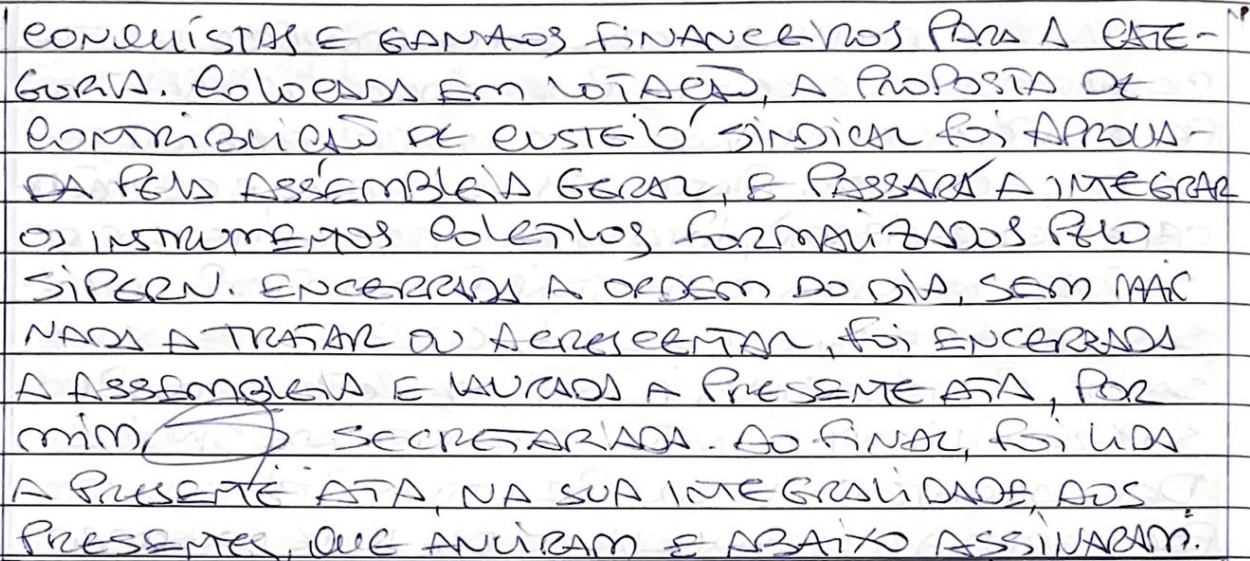 CONQUISTAS E GANHOS FINANCEIROS PARA A CATE-
GORIA. COLOCADA EM VOTAÇÃO, A PROPOSTA DE
CONTRIBUIÇÃO DE CUSTEIO SINDICAL FOI APROVA-
DA PELA ASSEMBLEIA GERAL, E PASSARÁ A INTEGRAR
OS INSTRUMENTOS COLETIVOS FORMALIZADOS PELO
SIPERN. ENCERRADA A ORDEM DO DIA, SEM MAIS
NADA A TRATAR OU ACRESCENTAR, FOI ENCERRADA
A ASSEMBLEIA E LAVRADA A PRESENTE ATA, POR
MIM, SECRETARIADA. AO FINAL, FOI LIDA
A PRESENTE ATA, NA SUA INTEGRALIDADE, AOS
PRESENTES, QUE ANUIRAM E ABAIXO ASSINARAM.